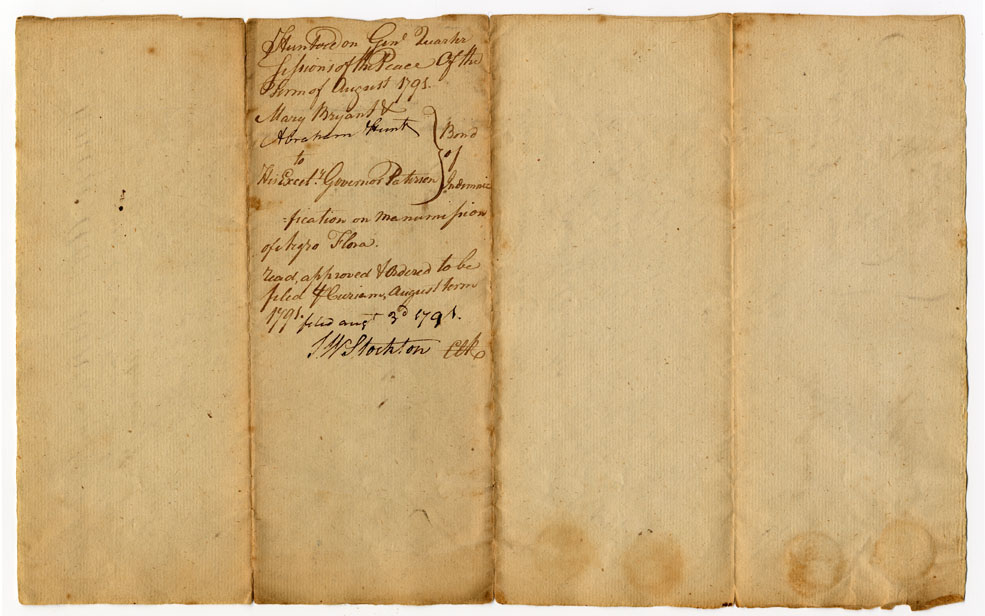 Hunterdon Genl. Quarter
Sessions of the Peace Of the
Term of August 1791.
Mary Bryant &
Abraham Hunt
to
His Excely. Governor Paterson
Bond
of
Indemni
-fication on manumission
of Negro Flora.
read, approved & Ordered to be
filed Curiam, August term
1791.
filed augt 3d 1791.
Stockton Clk